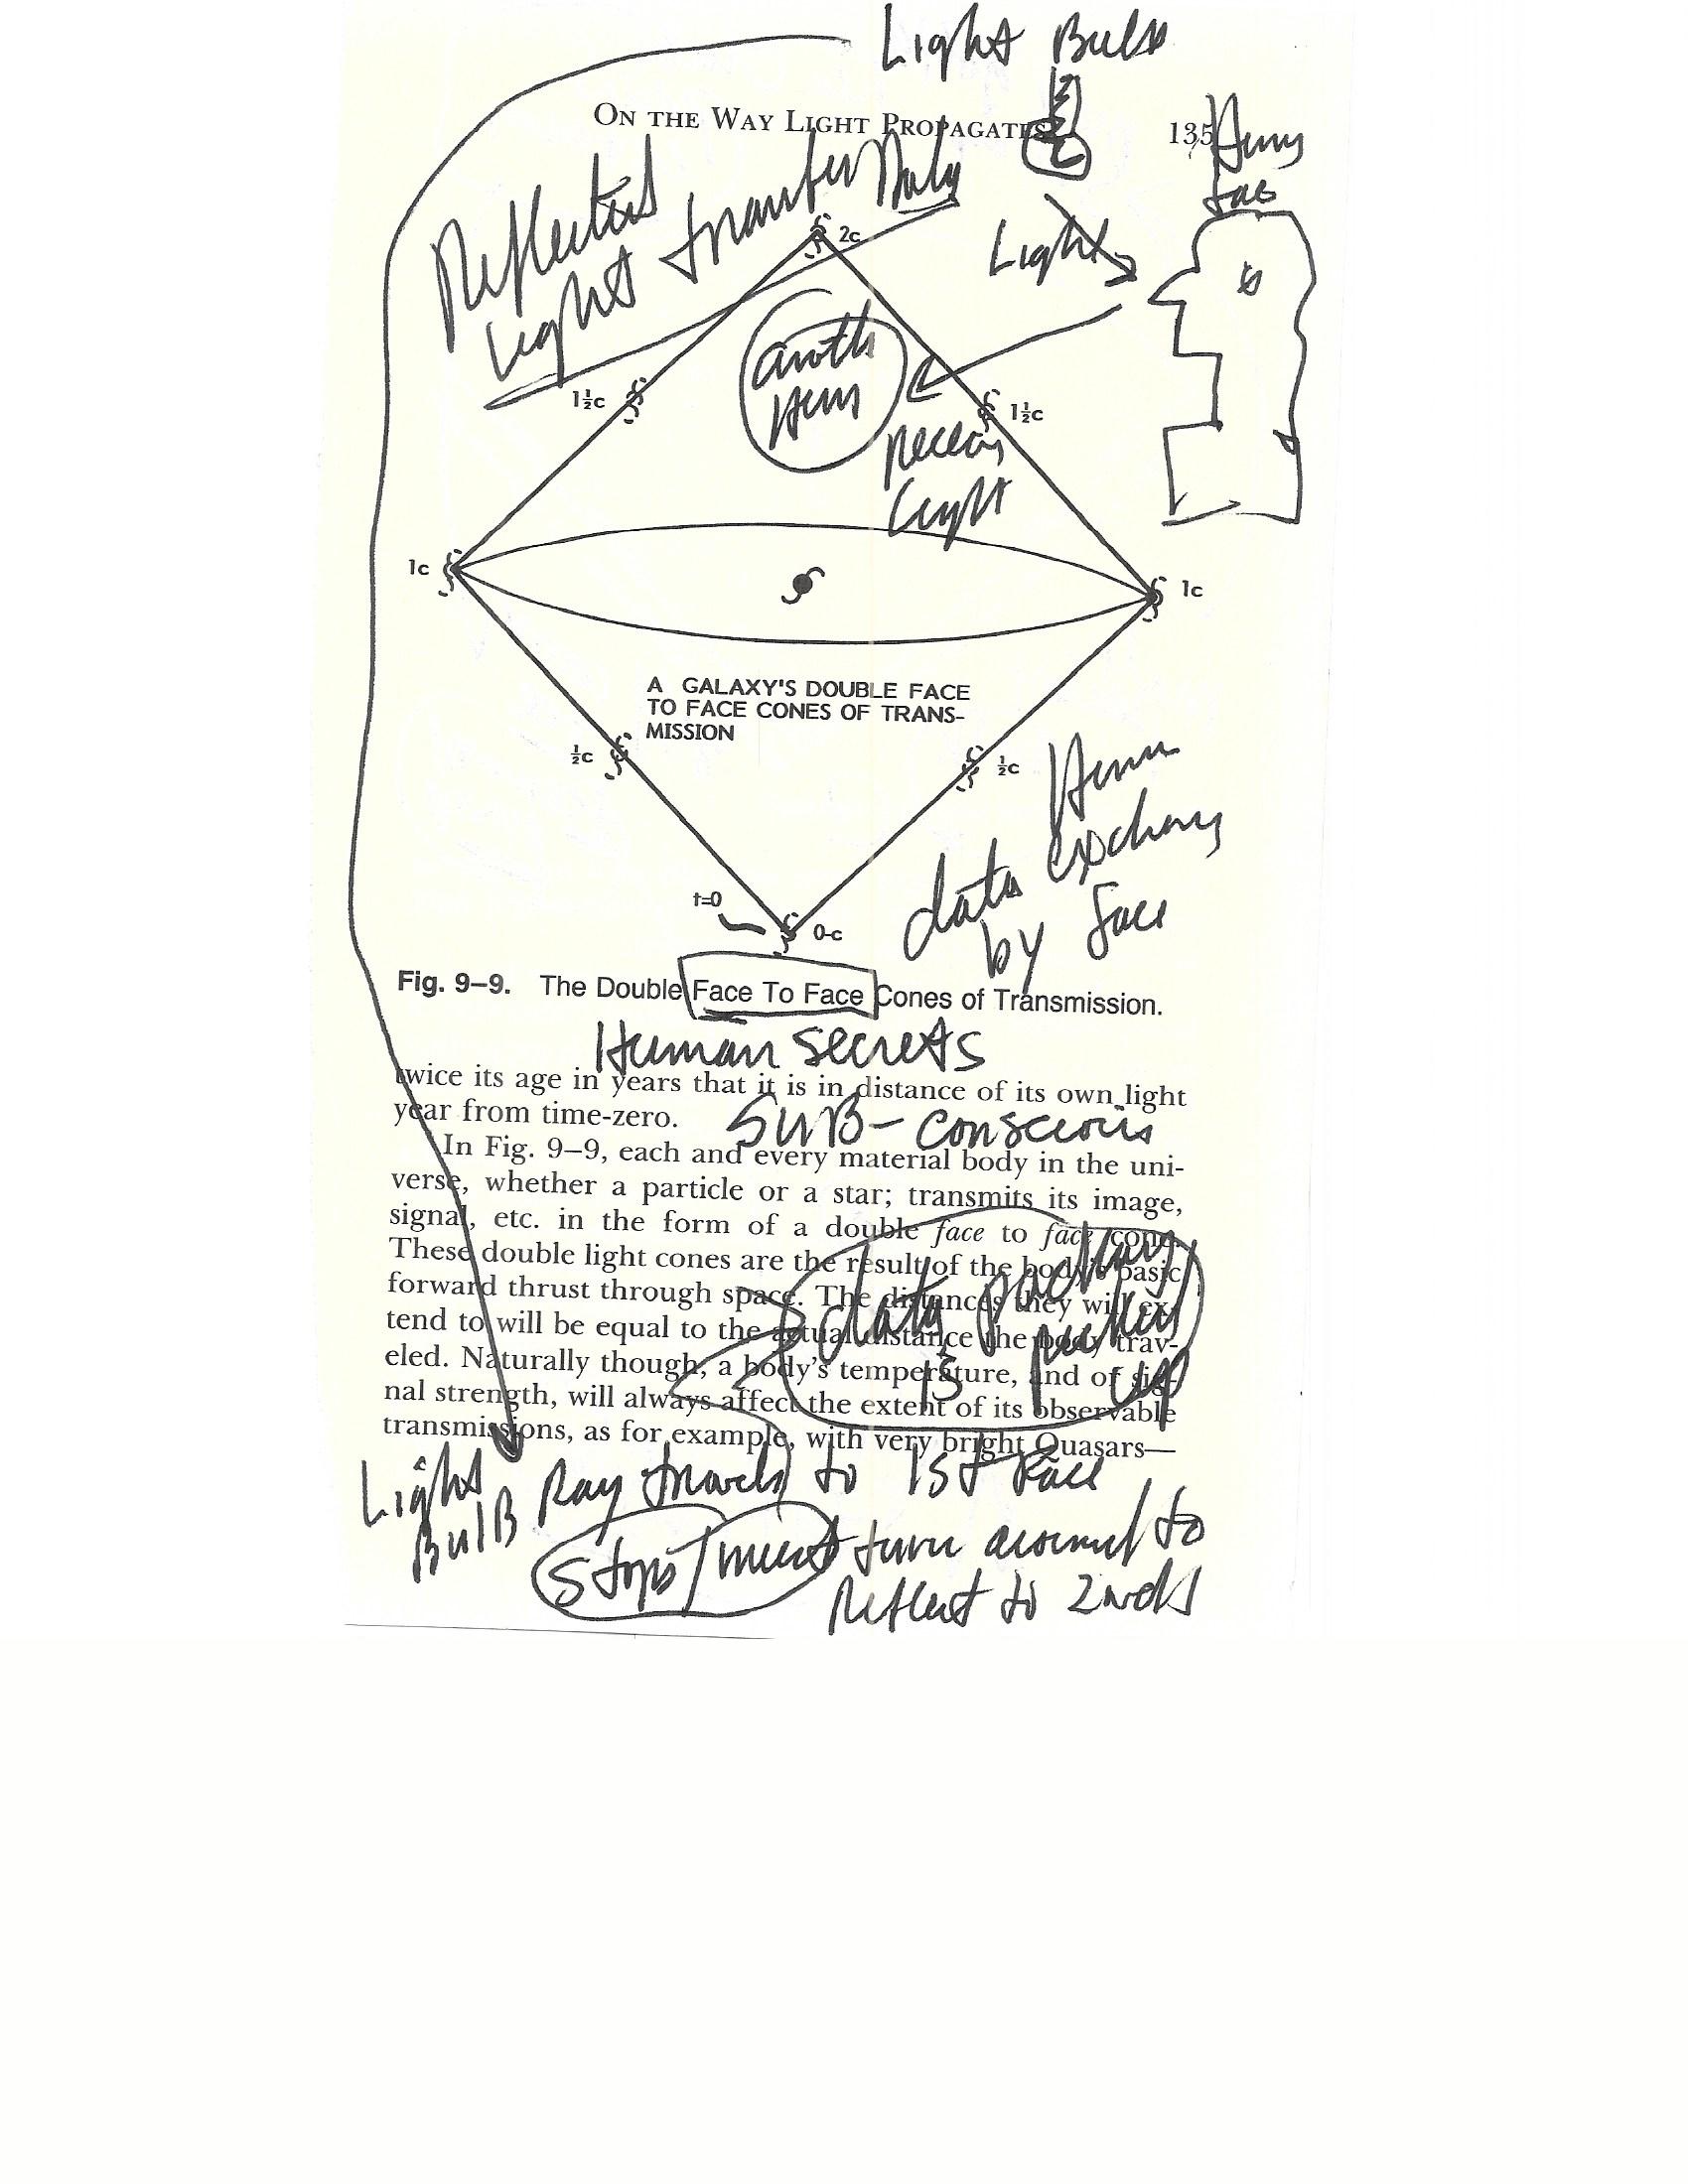 Light Bulb
ON THE WAY LIGHT PROPAGATES
135
Reflected
Light transfer
Light
2c
1½c
1½c
Light
1c
1c
A GALAXY'S DOUBLE FACE
TO FACE CONES OF TRANS-
MISSION
½c
½c
data
by face
t=0
0-c
Fig. 9–9. The Double Face To Face Cones of Transmission.
Human secrets
twice its age in years that it is in distance of its own light
year from time-zero.
SUB-conscious
In Fig. 9–9, each and every material body in the uni-
verse, whether a particle or a star; transmits its image,
signal, etc. in the form of a double face to face cone.
These double light cones are the result of the body's basic
forward thrust through space. The distances they will ex-
tend to will be equal to the actual distance the body trav-
eled. Naturally though, a body's temperature, and of sig-
nal strength, will always affect the extent of its observable
transmissions, as for example, with very bright Quasars—
data
is
up
Light Bulb Ray travels to 1st face
Stops / must turn around to
Reflect to 2nd